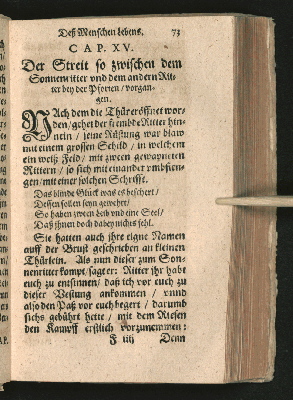 Deß Menschen lebens. 73
CAP. XV.
Der Streit so zwischen dem
Sonnenritter vnd dem andern Rit-
ter bey der Pforten / vorgan-
gen.
NAch dem die Thür eröffnet wor-
den / gehet der frembde Ritter hin-
nein / seine Rüstung war blaw
mit einem grossen Schild / in welchem
ein weiß Feld / mit zween gewapneten
Rittern / so sich mit einander vmbfien-
gen / mit einer solchen Schrifft.
Das blinde Glück was es beschert /
Dessen sollen seyn gewehrt /
So haben zween leib vnd eine Seel /
Daß ihnen doch dabey nichts fehl.
Sie hatten auch ihre eigne Namen
auff der Brust geschrieben an kleinen
Thürlein. Als nun dieser zum Son-
nenritter kompt / sagt er: Ritter ihr habt
euch zu entsinnen / daß ich vor euch zu
dieser Vestung ankommen / vnnd
also den Paß vor euch begert / darumb
sichs gebührt hette / mit dem Riesen
den Kampff erstlich vorzunemmen:
F iiij Denn